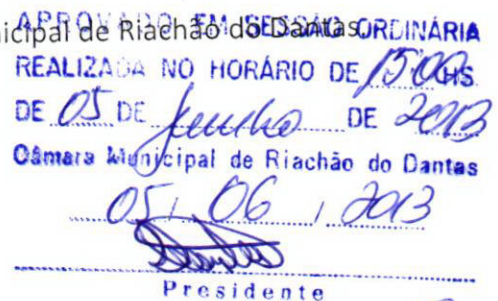 nicipal de Riachão do Dantas.
APROVADO EM SESSÃO ORDINÁRIA
REALIZADA NO HORÁRIO DE 15:00HS
DE 05 DE Junho DE 2013
Câmara Municipal de Riachão do Dantas
05, 06, 2013
Presidente